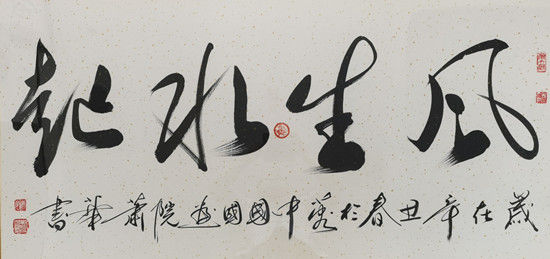 风生水起
歲在辛丑春於中國國畫院萧華書